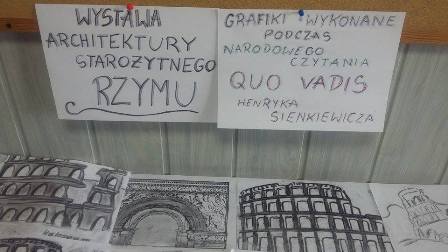 WYSTAWA
ARCHITEKTURY
STAROŻYTNEGO
RZYMU
GRAFIKI WYKONANE
PODCZAS
NARODOWEGO
CZYTANIA
QUO VADIS
HENRYKA
SIENKIEWICZA